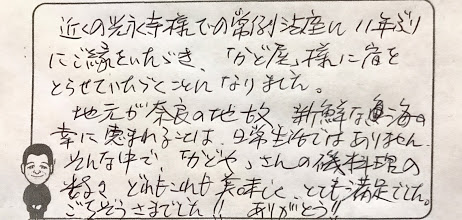 近くの光永寺様での常例法座に11年ぶり
にご縁をいただき、「かど屋」様に宿を
とらせていただくことになりました。
地元が奈良の地故、新鮮な魚海の
幸に恵まれることは、日常生活ではありません。
そんな中で、「かどや」さんの磯料理の
数々 どれもこれも美味しく、とても満足でした。
ごちそうさまでした!! ありがとう!!